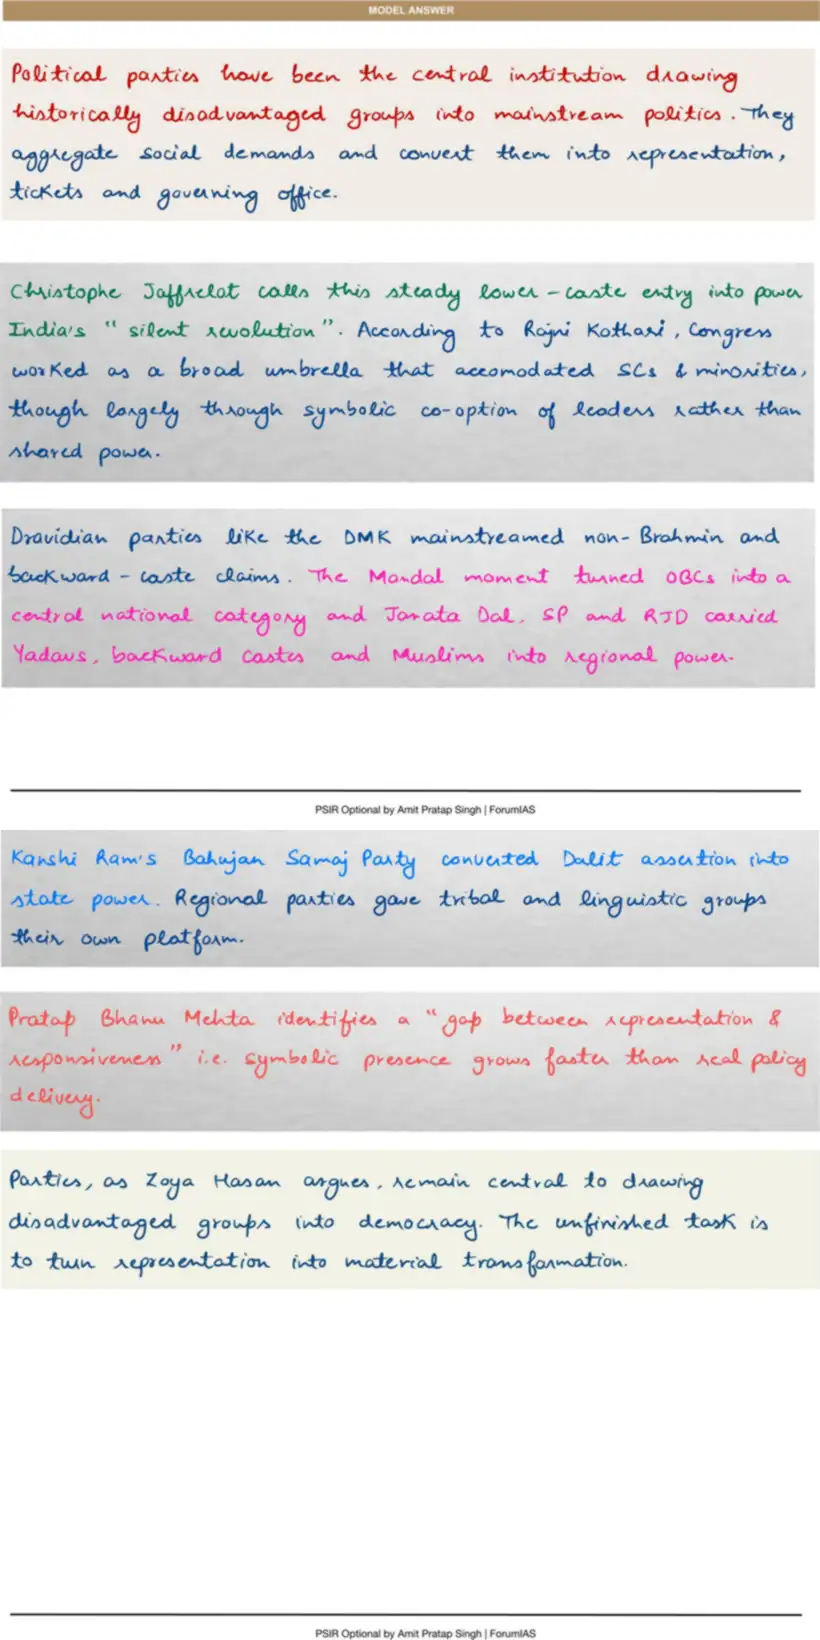 MODEL ANSWER
Political parties have been the central institution drawing
historically disadvantaged groups into mainstream politics. They
aggregate social demands and convert them into representation,
tickets and governing office.
Christophe Jaffrelot calls this steady lower-caste entry into power
India's "silent revolution". According to Rajni Kothari, Congress
worked as a broad umbrella that accomodated SCs & minorities,
though largely through symbolic co-option of leaders rather than
shared power.
Dravidian parties like the DMK mainstreamed non-Brahmin and
backward-caste claims. The Mandal moment turned OBCs into a
central national category and Janata Dal, SP and RJD carried
Yadavs, backward castes and Muslims into regional power.
PSIR Optional by Amit Pratap Singh | ForumIAS
Kanshi Ram's Bahujan Samaj Party converted Dalit assertion into
state power. Regional parties gave tribal and linguistic groups
their own platform.
Pratap Bhanu Mehta identifies a "gap between representation &
responsiveness" i.e. symbolic presence grows faster than real policy
delivery.
Parties, as Zoya Hasan argues, remain central to drawing
disadvantaged groups into democracy. The unfinished task is
to turn representation into material transformation.
PSIR Optional by Amit Pratap Singh | ForumIAS